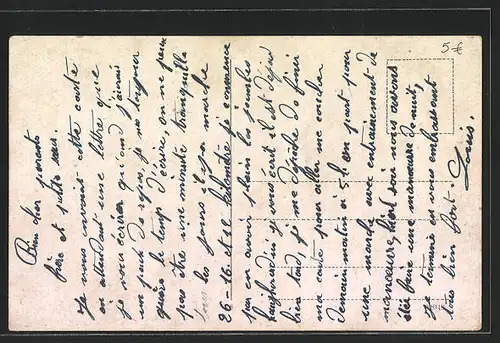 5 €
Bien cher parents
frère et petite sœur.
Je vous envoie cette carte
en attendant une lettre que
je vous écrirai quand j'aurai
un peu de repos, je ne toujours
guère le temps d'écrire, on ne peux
pas être une minute tranquille
tous les jours il y a marche
26 - 16 et 18 kilomètre je commence
par en avoir plein les jambes
Aujourd'hui je vous écrit il est déjà
bien tard, je me dépêche de finir
ma carte pour aller me coucher
Demain matin à 5 h on part pour
une marche avec entrainement de
manœuvre, hier soir nous avons
fait une manœuvre de nuit,
Je termine en vous embrassant
tous bien fort. Louis.